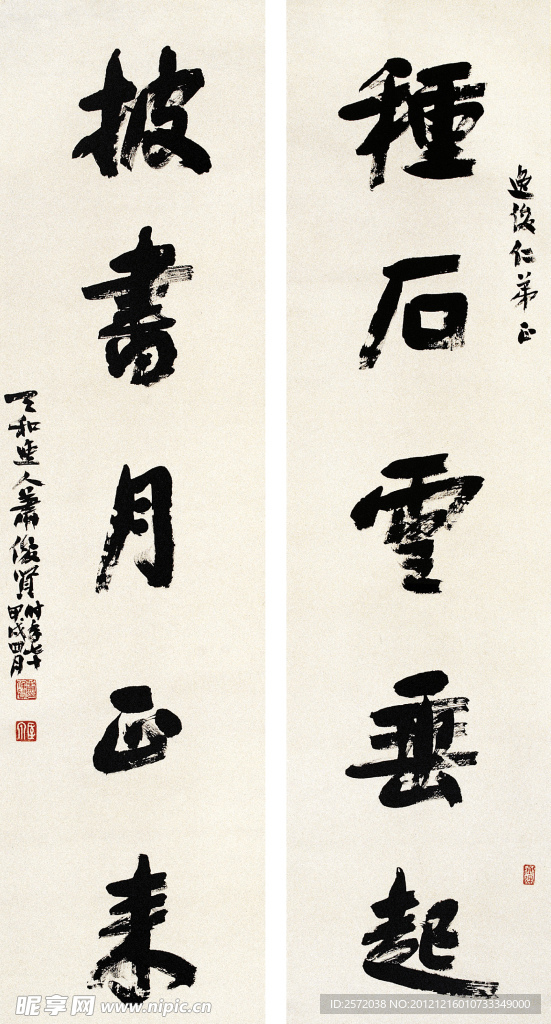 逸俊仁弟正
種石雲垂起
披書月正來
天和逸人蕭俊賢時年七十
甲戌四月
昵享网 www.nipic.cn
ID:2572038 NO:20121216010733349000